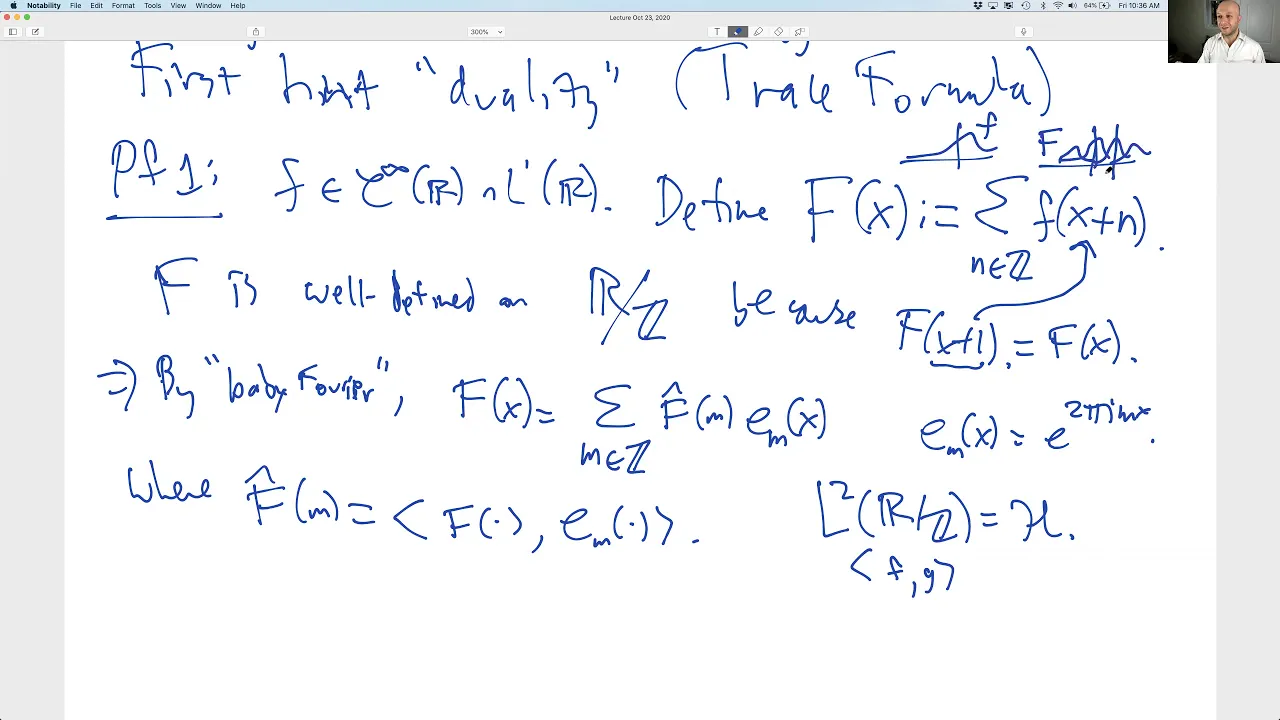 Notability File Edit Format Tools View Window Help 64% Fri 10:36 AM
Lecture Oct 23, 2020
300% T
First hint "duality" (Trace Formula)
f F
Pf 1: f ∈ C^∞(ℝ) ∩ L¹(ℝ). Define F(x) := Σ_{n∈ℤ} f(x+n).
F is well-defined on ℝ/ℤ because F(x+1) = F(x).
⇒ By "baby Fourier", F(x) = Σ_{m∈ℤ} F̂(m) e_m(x) e_m(x) = e^{2πimx}.
where F̂(m) = <F(·), e_m(·)>. L²(ℝ/ℤ) = ℋ.
<f, g>